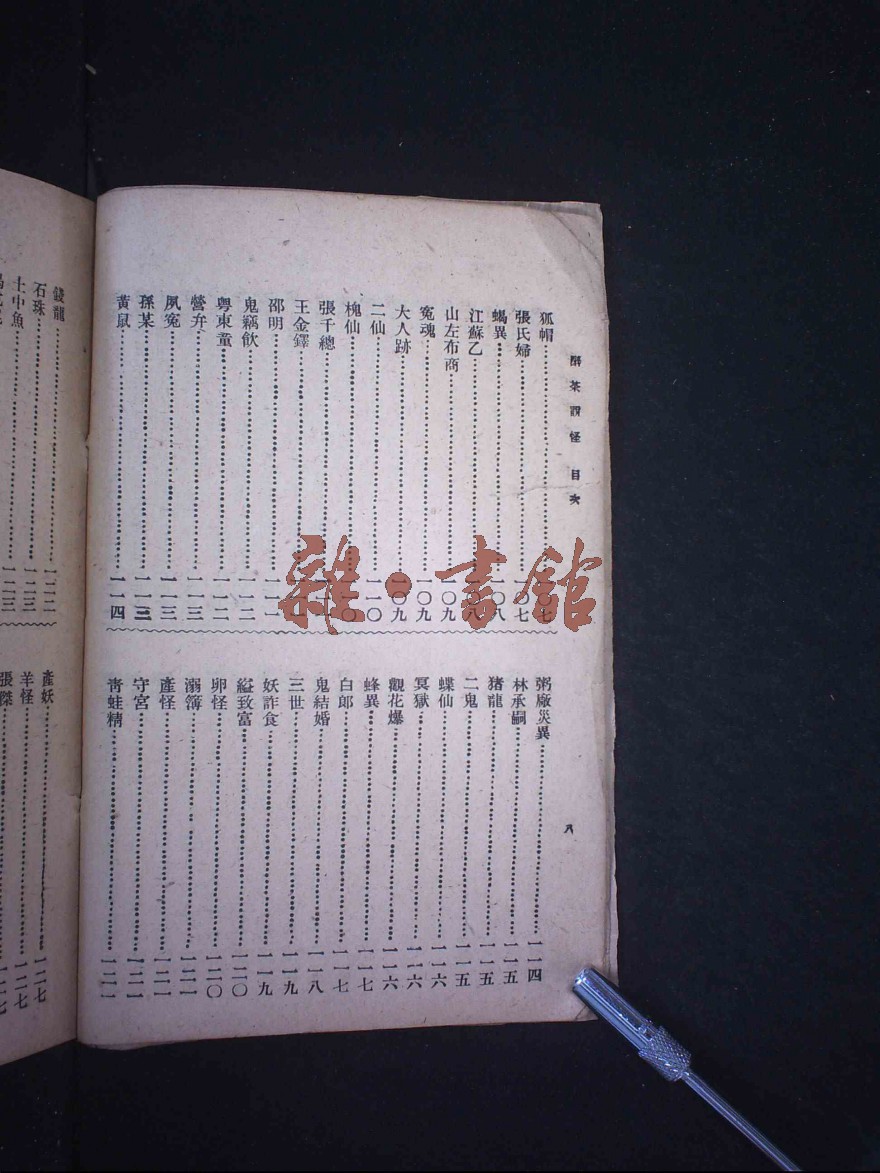 醉茶說怪 目次
八
狐帽 一〇七
張氏婦 一〇七
蝎異 一〇八
江蘇乙 一〇八
山左布商 一〇九
寃魂 一〇九
大人跡 一〇九
二仙 一一〇
槐仙 一一〇
張千總
王金鐸
邵明 一一一
鬼竊飲 一一二
粵東童 一一二
營弁 一一三
夙寃 一一三
孫某 一一三
黃鼠 一一四
粥廠災異 一一四
林承嗣 一一五
猪龍 一一五
二鬼 一一五
蝶仙 一一六
冥獄 一一六
觀花爆 一一六
蜂異 一一七
白郎 一一七
鬼結婚 一一八
三世 一一九
妖詐食 一一九
縊致富 一二〇
卵怪 一二〇
溺簿 一二一
產怪 一二一
守宮 一二一
青蛙精
錢龍 一二二
石珠 一二三
土中魚 一二三
產妖 一二七
羊怪 一二七
張傑 一二七
雜·書館